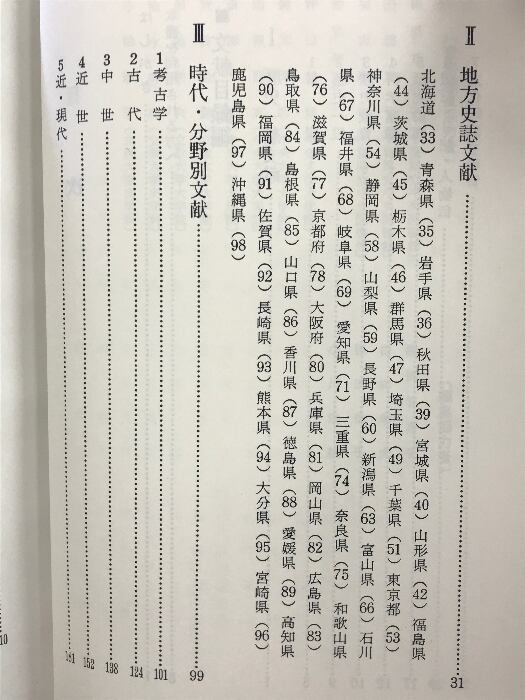 Ⅱ 地方史誌文献 31
北海道(33) 青森県(35) 岩手県(36) 秋田県(39) 宮城県(40) 山形県(42) 福島県
(44) 茨城県(45) 栃木県(46) 群馬県(47) 埼玉県(49) 千葉県(51) 東京都(53)
神奈川県(54) 静岡県(58) 山梨県(59) 長野県(60) 新潟県(63) 富山県(66) 石川
県(67) 福井県(68) 岐阜県(69) 愛知県(71) 三重県(74) 奈良県(75) 和歌山県
(76) 滋賀県(77) 京都府(78) 大阪府(80) 兵庫県(81) 岡山県(82) 広島県(83)
鳥取県(84) 島根県(85) 山口県(86) 香川県(87) 徳島県(88) 愛媛県(89) 高知県
(90) 福岡県(91) 佐賀県(92) 長崎県(93) 熊本県(94) 大分県(95) 宮崎県(96)
鹿児島県(97) 沖縄県(98)
Ⅲ 時代・分野別文献 99
1 考古学 101
2 古代 124
3 中世 138
4 近世 152
5 近・現代 181